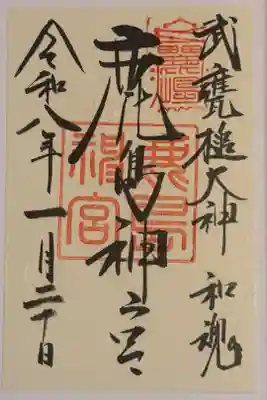 武甕槌大神 和魂
鹿島神宮
鹿島
神宮
令和八年一月二十日